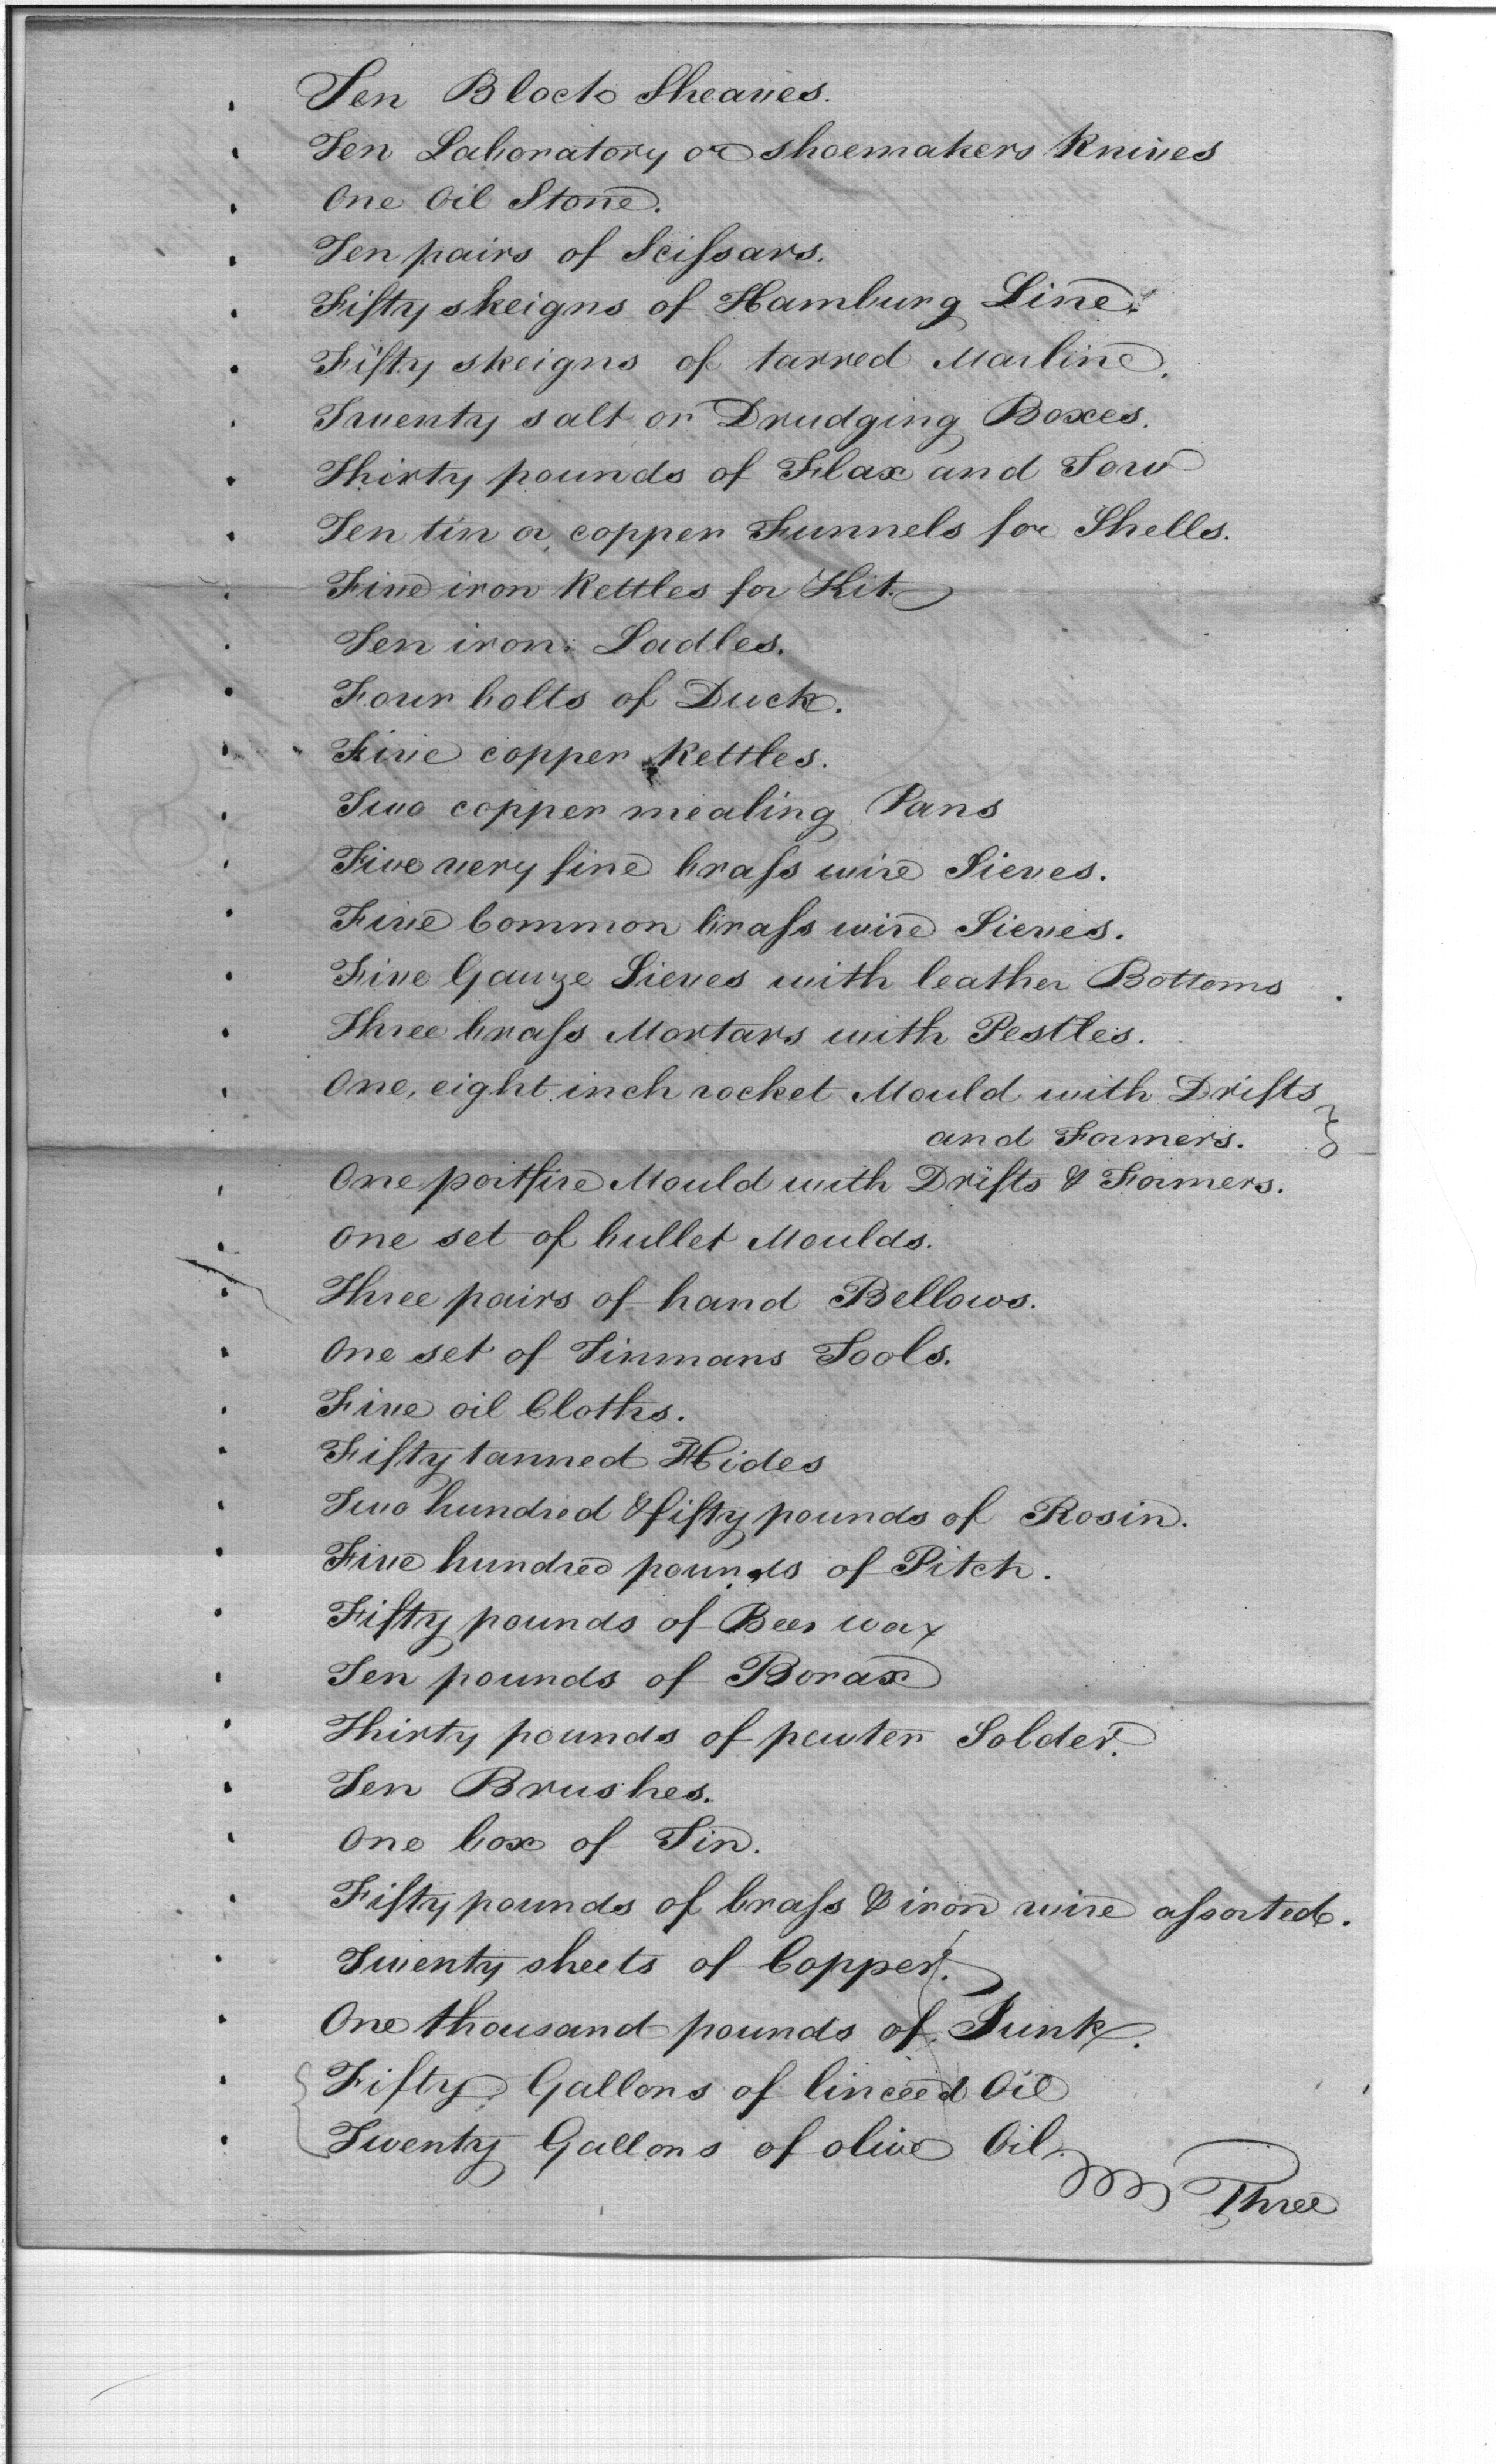 Ten Block Sheaves.
Ten Laboratory or shoemakers Knives
One Oil Stone.
Ten pairs of Scissars.
Fifty skeigns of Hamburg Line.
Fifty skeigns of tarred Marline.
Twenty salt or Drudging Boxes.
Thirty pounds of Flax and Tow
Ten tin or copper Funnels for Shells.
Five iron Kettles for Kit.
Ten iron Ladles.
Four bolts of Duck.
Five copper Kettles.
Two copper mealing Pans
Five very fine brass wire Sieves.
Five Common brass wire Sieves.
Five Gauze Sieves with leather Bottoms
Three brass Mortars with Pestles.
One, eight inch rocket Mould with Drifts
and Formers.
One portfire Mould with Drifts & Formers.
One set of bullet Moulds.
Three pairs of hand Bellows.
One set of Tinmans Tools.
Five oil Cloths.
Fifty tanned Hides
Two hundred & fifty pounds of Rosin.
Five hundred pounds of Pitch.
Fifty pounds of Bees wax
Ten pounds of Borax
Thirty pounds of pewter Solder.
Ten Brushes.
One box of Tin.
Fifty pounds of brass & iron wire assorted.
Twenty sheets of Copper.
One thousand pounds of Junk.
Fifty Gallons of linceed Oil
Twenty Gallons of olive Oil.
Three